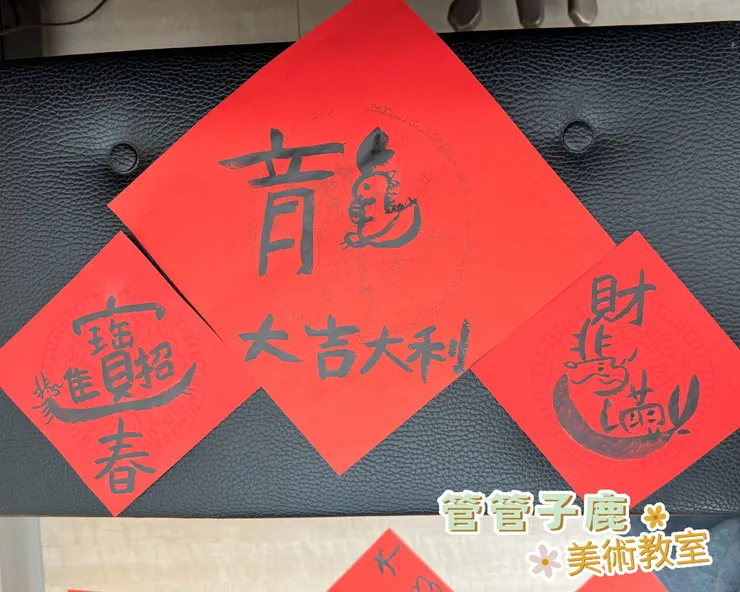 龍
大吉大利
招財進寶
春
財
滿
管管子鹿
美術教室
大